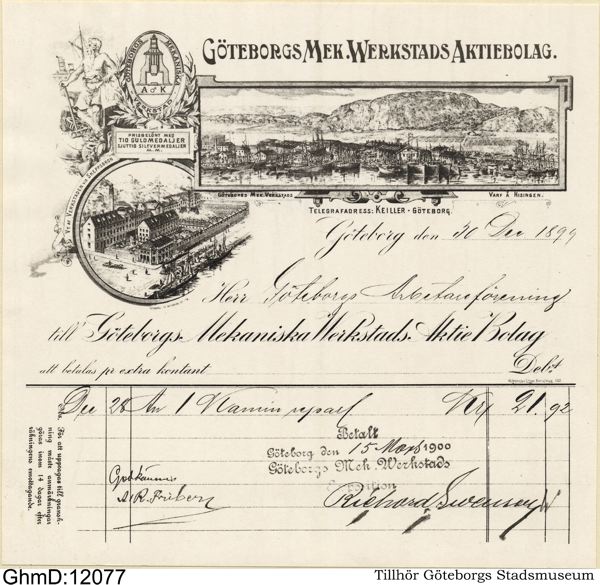 GÖTEBORGS MEK. WERKSTADS AKTIEBOLAG.
GÖTEBORGS MEKANISKA WERKSTAD
A K
PRISBELÖNT MED
TIO GULDMEDALJER
SJUTTIO SILFVERMEDALJER
M.M.
GÖTEBORGS MEK. VERKSTADS
VARF Å HISINGEN.
TELEGRAFADRESS: KEILLER - GÖTEBORG.
Göteborg den 30 Dec 1899
Herr Göteborgs Arbetareförening
till Göteborgs Mekaniska Werkstads Aktie Bolag
att betalas pr extra kontant Debet
Dec 28 An 1 Kamin repar Kr 21.92
Betalt
Göteborg den 15 Mars 1900
Göteborgs Mek. Werkstads
Expedition
Richard Swenson
Godkännes
A. R. Friberg
Obs. För att upptagas till gransk-
ning måste anmärkningar
göras inom 14 dagar efter
räkningens emottagande.
GhmD:12077
Tillhör Göteborgs Stadsmuseum